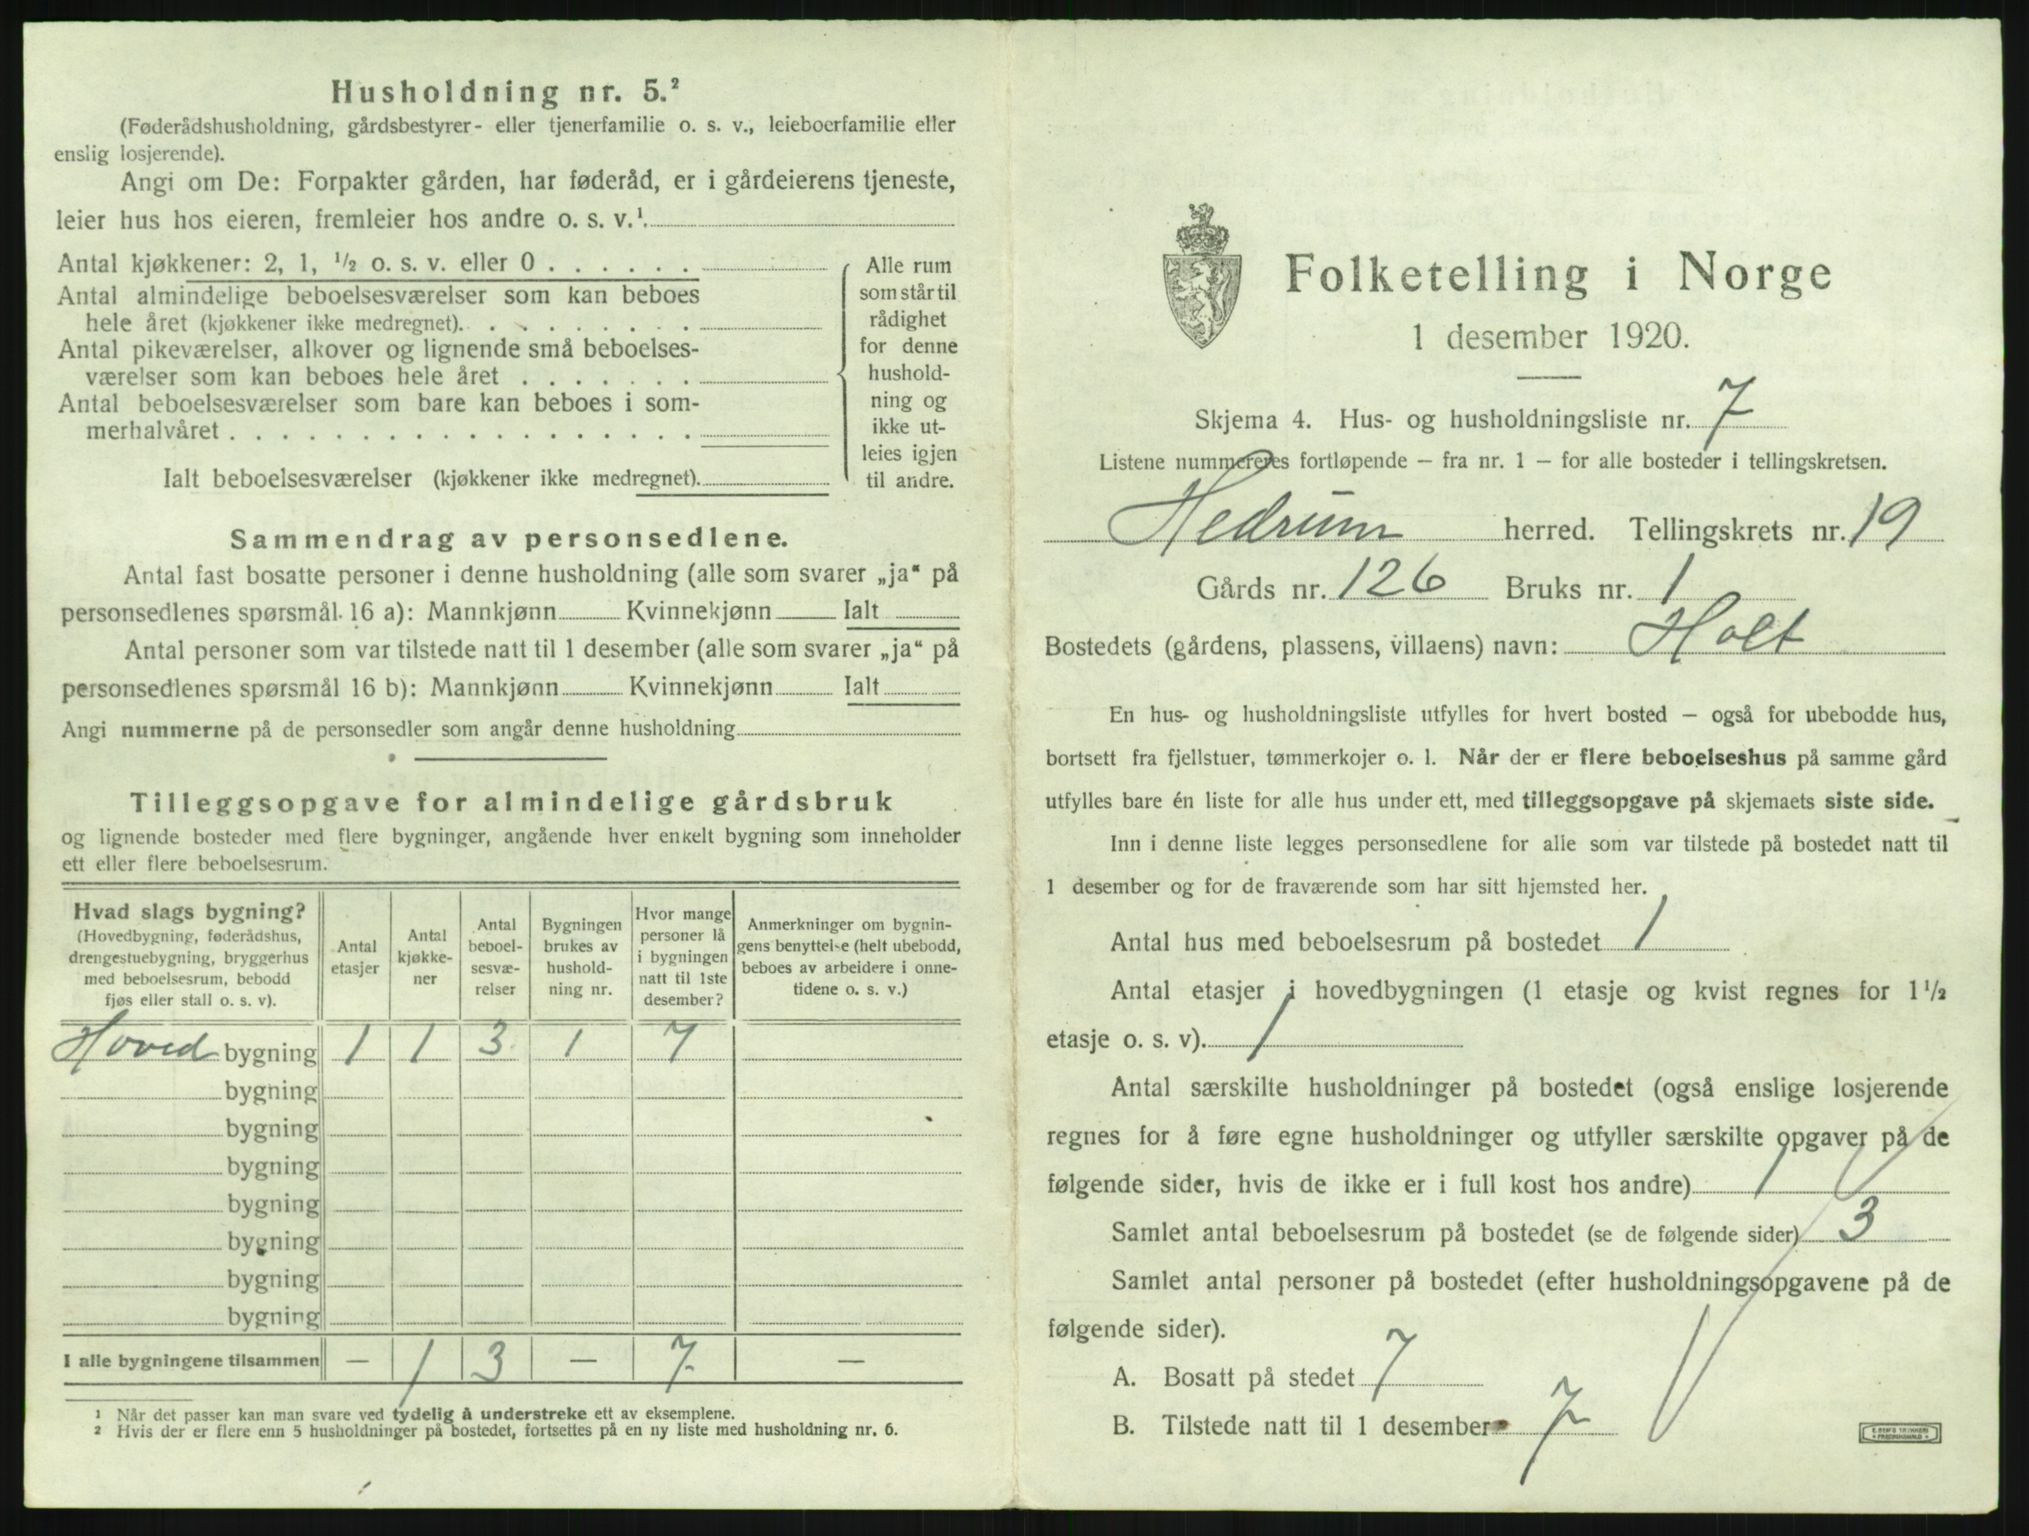 Husholdning nr. 5.²
(Føderådshusholdning, gårdsbestyrer- eller tjenerfamilie o. s. v., leieboerfamilie eller
enslig losjerende).
Angi om De: Forpakter gården, har føderåd, er i gårdeierens tjeneste,
leier hus hos eieren, fremleier hos andre o. s. v.¹.
Antal kjøkkener: 2, 1, ½ o. s. v. eller 0 . . . . . .
Antal almindelige beboelsesværelser som kan beboes
hele året (kjøkkener ikke medregnet). . . . . . . . .
Antal pikeværelser, alkover og lignende små beboelses-
værelser som kan beboes hele året . . . . . . .
Antal beboelsesværelser som bare kan beboes i som-
merhalvåret . . . . . . . . . . . . . . . . . .
Ialt beboelsesværelser (kjøkkener ikke medregnet).
Alle rum
som står til
rådighet
for denne
hushold-
ning og
ikke ut-
leies igjen
til andre.
Sammendrag av personsedlene.
Antal fast bosatte personer i denne husholdning (alle som svarer „ja“ på
personsedlenes spørsmål 16 a): Mannkjønn Kvinnekjønn Ialt
Antal personer som var tilstede natt til 1 desember (alle som svarer „ja“ på
personsedlenes spørsmål 16 b): Mannkjønn Kvinnekjønn Ialt
Angi nummerne på de personsedler som angår denne husholdning
Tilleggsopgave for almindelige gårdsbruk
og lignende bosteder med flere bygninger, angående hver enkelt bygning som inneholder
ett eller flere beboelsesrum.
Hvad slags bygning?
(Hovedbygning, føderådshus,
drengestuebygning, bryggerhus
med beboelsesrum, bebodd
fjøs eller stall o. s. v).
Antal
etasjer
Antal
kjøkke-
ner
Antal
beboel-
sesvæ-
relser
Bygningen
brukes av
hushold-
ning nr.
Hvor mange
personer lå
i bygningen
natt til 1ste
desember?
Anmerkninger om bygnin-
gens benyttelse (helt ubebodd,
beboes av arbeidere i onne-
tidene o. s. v.)
Hoved bygning 1 1 3 1 7
bygning
bygning
bygning
bygning
bygning
bygning
bygning
I alle bygningene tilsammen — 1 3 — 7 —
¹ Når det passer kan man svare ved tydelig å understreke ett av eksemplene.
² Hvis der er flere enn 5 husholdninger på bostedet, fortsettes på en ny liste med husholdning nr. 6.
Folketelling i Norge
1 desember 1920.
Skjema 4. Hus- og husholdningsliste nr. 7
Listene nummereres fortløpende – fra nr. 1 – for alle bosteder i tellingskretsen.
Hedrum herred. Tellingskrets nr. 19
Gårds nr. 126 Bruks nr. 1
Bostedets (gårdens, plassens, villaens) navn: Holt
En hus- og husholdningsliste utfylles for hvert bosted – også for ubebodde hus,
bortsett fra fjellstuer, tømmerkojer o. l. Når der er flere beboelseshus på samme gård
utfylles bare én liste for alle hus under ett, med tilleggsopgave på skjemaets siste side.
Inn i denne liste legges personsedlene for alle som var tilstede på bostedet natt til
1 desember og for de fraværende som har sitt hjemsted her.
Antal hus med beboelsesrum på bostedet 1
Antal etasjer i hovedbygningen (1 etasje og kvist regnes for 1½
etasje o. s. v). 1
Antal særskilte husholdninger på bostedet (også enslige losjerende
regnes for å føre egne husholdninger og utfyller særskilte opgaver på de
følgende sider, hvis de ikke er i full kost hos andre) 1
Samlet antal beboelsesrum på bostedet (se de følgende sider) 3
Samlet antal personer på bostedet (efter husholdningsopgavene på de
følgende sider).
A. Bosatt på stedet 7
B. Tilstede natt til 1 desember 7